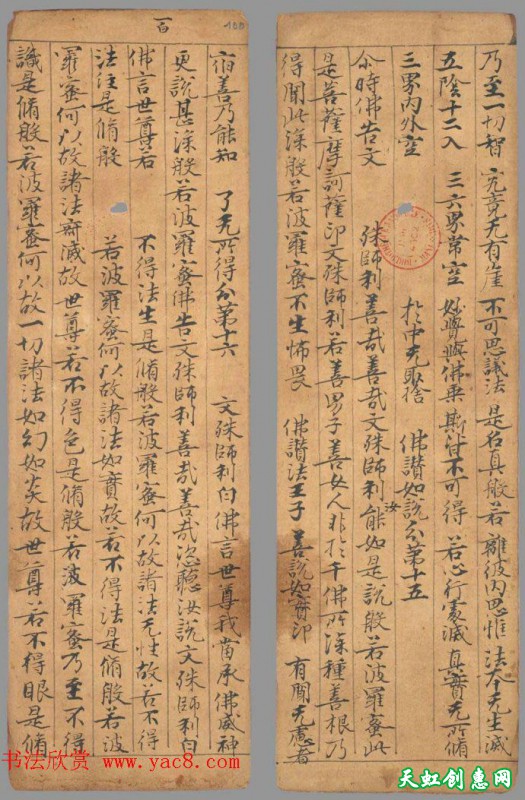 乃至一切智 究竟无有崖 不可思議法 是名真般若 離彼内思惟 法本先生滅
五陰十二入 三六界常空 妙覺與佛乘 斯皆不可得 若心行處滅 真實无所脩
三界内外空 於中无取捨 佛讚如說分第十五
尒時佛告文殊師利善哉善哉文殊師利汝能如是說般若波羅蜜此
是菩薩摩訶薩印文殊師利若善男子善女人非於千佛所深種善根乃
得聞此深般若波羅蜜不生怖畏 佛讚法王子 善說如實印 有聞无慮者
宿善乃能知 了无所得分第十六 文殊師利白佛言世尊我當承佛威神
更說甚深般若波羅蜜佛告文殊師利善哉善哉恣聽汝說文殊師利白
佛言世尊若不得法生是脩般若波羅蜜何以故諸法无性故若不得
法住是脩般若波羅蜜何以故諸法如實故若不得法是脩般若波
羅蜜何以故諸法齊滅故世尊若不得色是脩般若波羅蜜乃至不得
識是脩般若波羅蜜何以故一切諸法如幻如炎故世尊若不得眼是脩
一百
100
书法欣赏
www.yac8.com
天虹创惠网